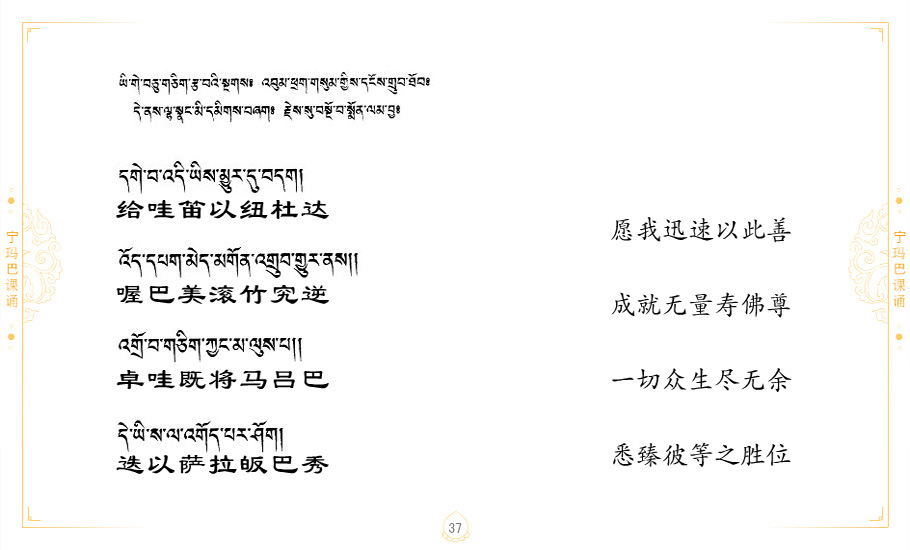 ཡི་གེ་བཅུ་གཅིག་རྩ་བའི་སྔགས༔ འབུམ་ཕྲག་གསུམ་གྱིས་དངོས་གྲུབ་ཐོབ༔
དེ་ནས་ལྷ་སྣང་མི་དམིགས་བཞག༔ རྗེས་སུ་བསྔོ་བ་སྨོན་ལམ་བྱ༔
དགེ་བ་འདི་ཡིས་མྱུར་དུ་བདག།
给哇笛以纽杜达
འོད་དཔག་མེད་མགོན་འགྲུབ་གྱུར་ནས།།
喔巴美滚竹究逆
འགྲོ་བ་གཅིག་ཀྱང་མ་ལུས་པ།།
卓哇既将马吕巴
དེ་ཡི་ས་ལ་འགོད་པར་ཤོག།
迭以萨拉皈巴秀
愿我迅速以此善
成就无量寿佛尊
一切众生尽无余
悉臻彼等之胜位
宁玛巴课诵
宁玛巴课诵
37